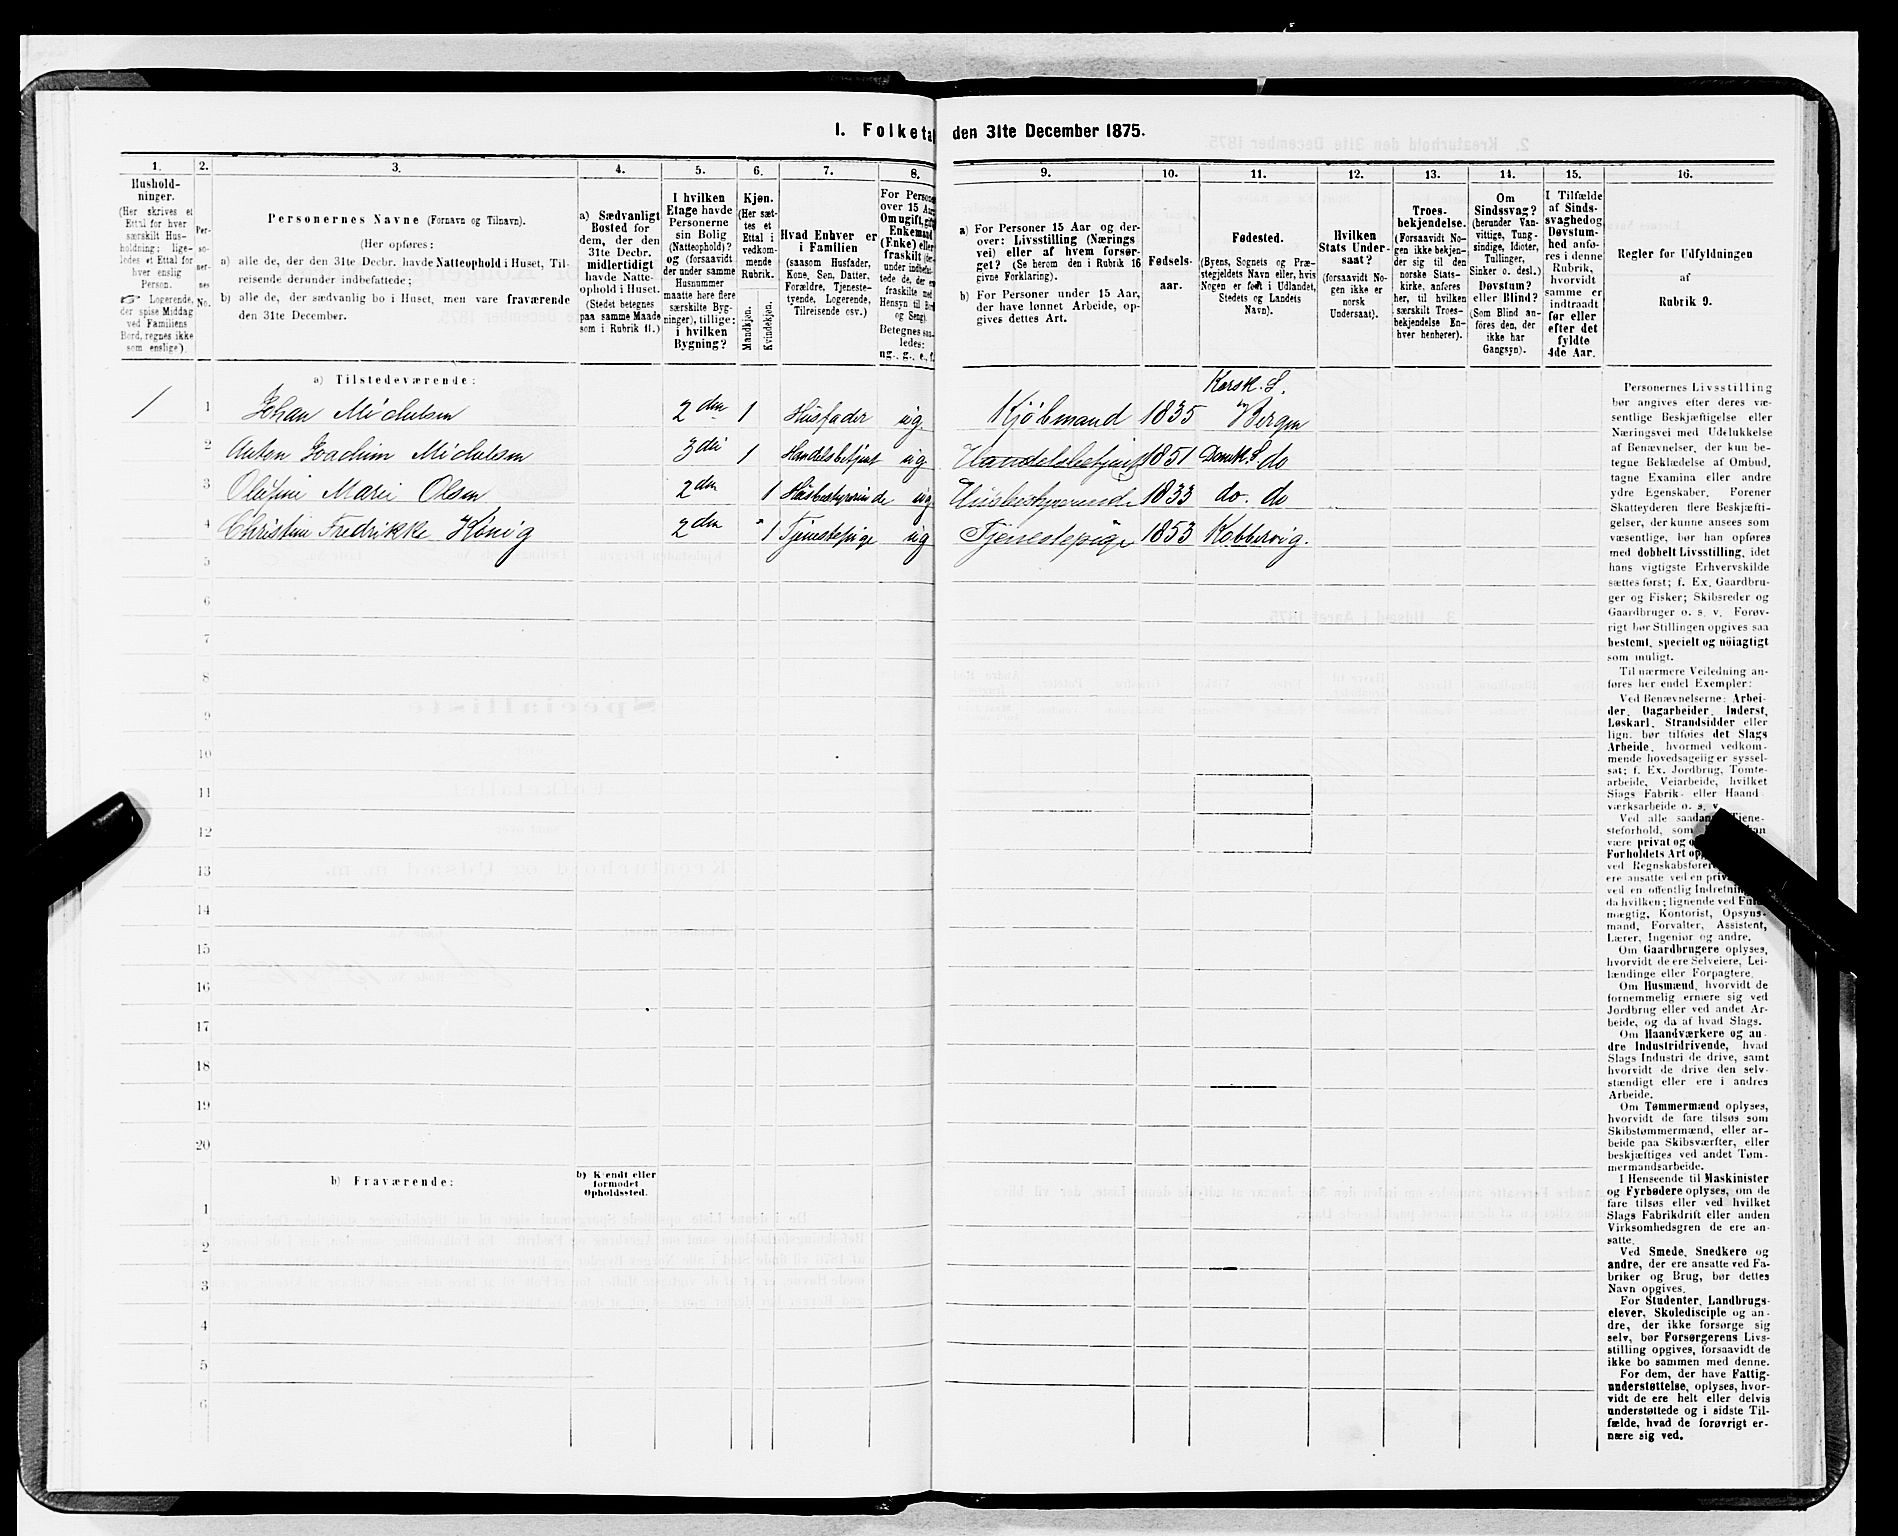 1. Folketal den 31te December 1875.
1.
Hushold-
ninger.
(Her skrives et
Ettal for hver
særskilt Hus-
holdning; lige-
ledes et Ettal for
hver enslig
Person.
☞ Logerende,
der spise Middag
ved Familiens
Bord, regnes ikke
som enslige).
2.
Per-
so-
ner-
nes
No.
3.
Personernes Navne (Fornavn og Tilnavn).
(Her opføres:
a) alle de, der den 31te Decbr. havde Natteophold i Huset, Til-
reisende derunder indbefattede;
b) alle de, der sædvanlig bo i Huset, men vare fraværende
den 31te December.
4.
a) Sædvanligt
Bosted for
dem, der den
31te Decbr.
midlertidigt
havde Natte-
ophold i Huset.
(Stedet betegnes
paa samme Maade
som i Rubrik 11.)
5.
I hvilken
Etage havde
Personerne
sin Bolig
(Natteophold)?
og (forsaavidt
der under samme
Husnummer
maatte høre flere
særskilte Byg-
ninger), tillige:
i hvilken
Bygning?
6.
Kjøn.
(Her sæt-
tes et
Ettal i
vedkom-
mende
Rubrik.
Mandkjøn.
Kvindekjøn.
7.
Hvad Enhver er
i Familien
(saasom Husfader,
Kone, Søn, Datter,
Forældre, Tjeneste-
tyende, Logerende,
Tilreisende osv.)
8.
For Person
over 15 Aar
Om ugift, gift,
Enkemand
(Enke) eller
fraskilt
Hensyn til Bord
og Seng).
Betegnes saa-
ledes:
ug., g., e., f.
9.
a) For Personer 15 Aar og der-
over: Livsstilling (Nærings
vei) eller af hvem forsør-
get? (Se herom den i Rubrik 16
givne Forklaring).
b) For Personer under 15 Aar,
der have lønnet Arbeide, op-
gives dettes Art.
10.
Fødsels-
aar.
11.
Fødested.
(Byens, Sognets og Præ-
stegjeldets Navn eller, hvis
Nogen er født i Udlandet,
Stedets og Landets
Navn).
12.
Hvilken
Stats Under-
saat?
(forsaavidt No-
gen ikke er
norsk
Undersaat).
13.
Troes-
bekjendelse.
(Forsaavidt No-
gen ikke bekjen-
der sig til den
norske Stats-
kirke, anføres
her, til hvilken
særskilt Troes-
bekjendelse En-
hver henhører).
14.
Om
Sindssvag?
(herunder Van-
vittige, Tung-
sindige, Idioter,
Tullinger,
Sinker o. desl.)
Døvstum?
eller Blind?
(Som Blind an-
føres den, der
ikke har
Gangsyn).
15.
I Tilfælde
af Sinds-
svaghed og
Døvstum-
hed anfø-
res i denne
Rubrik,
hvorvidt
samme er
indtraadt
før eller
efter det
fyldte
4de Aar.
16.
Regler for Udfyldningen
af
Rubrik 9.
a) Tilstedeværende:
1 1 Johan Michelsen 2den 1 Husfader ug. Kjøbmand 1835 Korsk. S. Bergen
2 Anton Joachim Michelsen 3die 1 Handelsbetjent ug Handelsbetjent 1851 Domk. S. do
3 Olufine Marie Olsen 2den 1 Husbestyrerinde ug Husbestyrerinde 1833 do. do
4 Christine Fredrikke König 2den " 1 Tjenestepige ug Tjenestepige 1853 Kobbervig.
5
6
7
8
9
10
11
12
13
14
15
16
17
18
19
20
b) Fraværende:
b) Kjendt eller
formodet
Opholdssted.
1
2
3
4
5
6
Personernes Livsstilling
bør angives efter deres væ-
sentlige Beskjæftigelse eller
Næringsvei med Udelukkelse
af Benævnelser, der kun be-
tegne Beklædelse af Ombud,
tagne Examina eller andre
ydre Egenskaber. Forener
Skatteyderen flere Beskjæfti-
gelser, der kunne ansees som
væsentlige, bør han opføres
med dobbelt Livsstilling, idet
hans vigtigste Erhvervskilde
sættes først; f. Ex. Gaardbru-
ger og Fisker; Skibsreder og
Gaardbruger o. s. v. Forøv-
rigt bør Stillingen opgives saa
bestemt, specielt og nöiagtigt
som muligt.
Til nærmere Veiledning an-
føres her endel Exempler:
Ved Benævnelserne: Arbei-
der, Dagarbeider, Inderst,
Løskarl, Strandsidder eller
lign. bør tilføies det Slags
Arbeide, hvormed vedkom-
mende hovedsagelig er syssel-
sat; f. Ex. Jordbrug, Tomte-
arbeide, Veiarbeide, hvilket
Slags Fabrik- eller Haand
værksarbeide o. s. v.
Ved alle saadan Tjene-
steforhold, som kan
være privat og
Forholdets Art
ved Regnskabsfører
ere ansatte ved en
ved en offentlig Indretning
da hvilken; lignende ved Fuld-
mægtig, Kontorist, Opsyns-
mand, Forvalter, Assistent,
Lærer, Ingeniør og andre.
Om Gaardbrugere oplyses,
hvorvidt de ere Selveiere, Lei-
lændinge eller Forpagtere.
Om Husmænd, hvorvidt de
fornemmelig ernære sig ved
Jordbrug eller ved andet Ar-
beide, og da af hvad Slags.
Om Haandværkere og an-
dre Industridrivende, hvad
Slags Industri de drive, samt
hvorvidt de drive den selv-
stændigt eller ere i andres
Arbeide.
Om Tømmermænd oplyses,
hvorvidt de fare tilsøs som
Skibstømmermænd, eller ar-
beide paa Skibsværfter, eller
beskjæftiges ved andet Tøm-
mermandsarbeide.
I Henseende til Maskinister
og Fyrbødere oplyses, om de
fare tilsøs eller ved hvilket
Slags Fabrikdrift eller anden
Virksomhedsgren de ere an-
satte.
Ved Smede, Snedkere og
andre, der ere ansatte ved Fa-
briker og Brug, bør dettes
Navn opgives.
For Studenter, Landbrugs-
elever, Skoledisciple og an-
dre, der ikke forsørge sig
selv, bør Forsørgerens Livs-
stilling opgives, forsaavidt de
ikke bo sammen med denne.
For dem, der have Fattig-
understøttelse, oplyses, hvor-
vidt de ere helt eller delvis
understøttede og i sidste Til-
fælde, hvad de forøvrigt er-
nære sig ved.